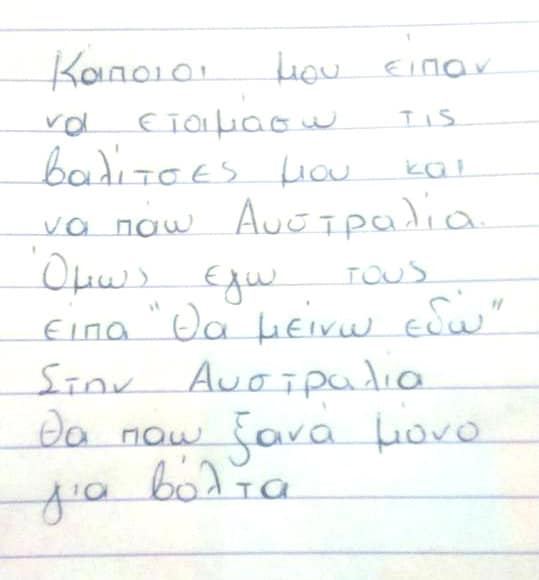 Κάποιοι μου είπαν
να ετοιμάσω τις
βαλίτσες μου και
να πάω Αυστραλία.
Όμως εγω τους
είπα "Θα μείνω εδώ"
Στην Αυστραλία
θα πάω ξανά μόνο
για βόλτα